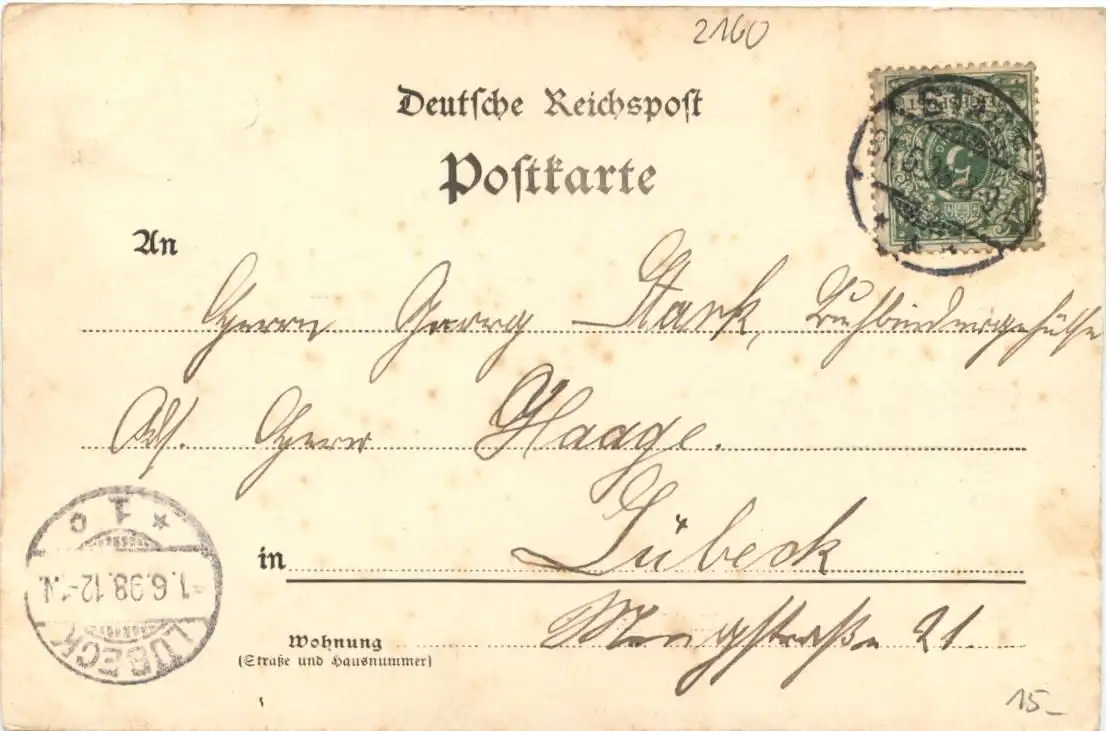 2160
Deutsche Reichspost
Postkarte
An
Herrn Georg Stark, Buchbindergehülfe
Adr. Herrn Haage.
in Lübeck
Wohnung Mengstraße 21.
(Straße und Hausnummer)
LÜBECK
1.6.98.12-1N.
* 1 c
5
15-